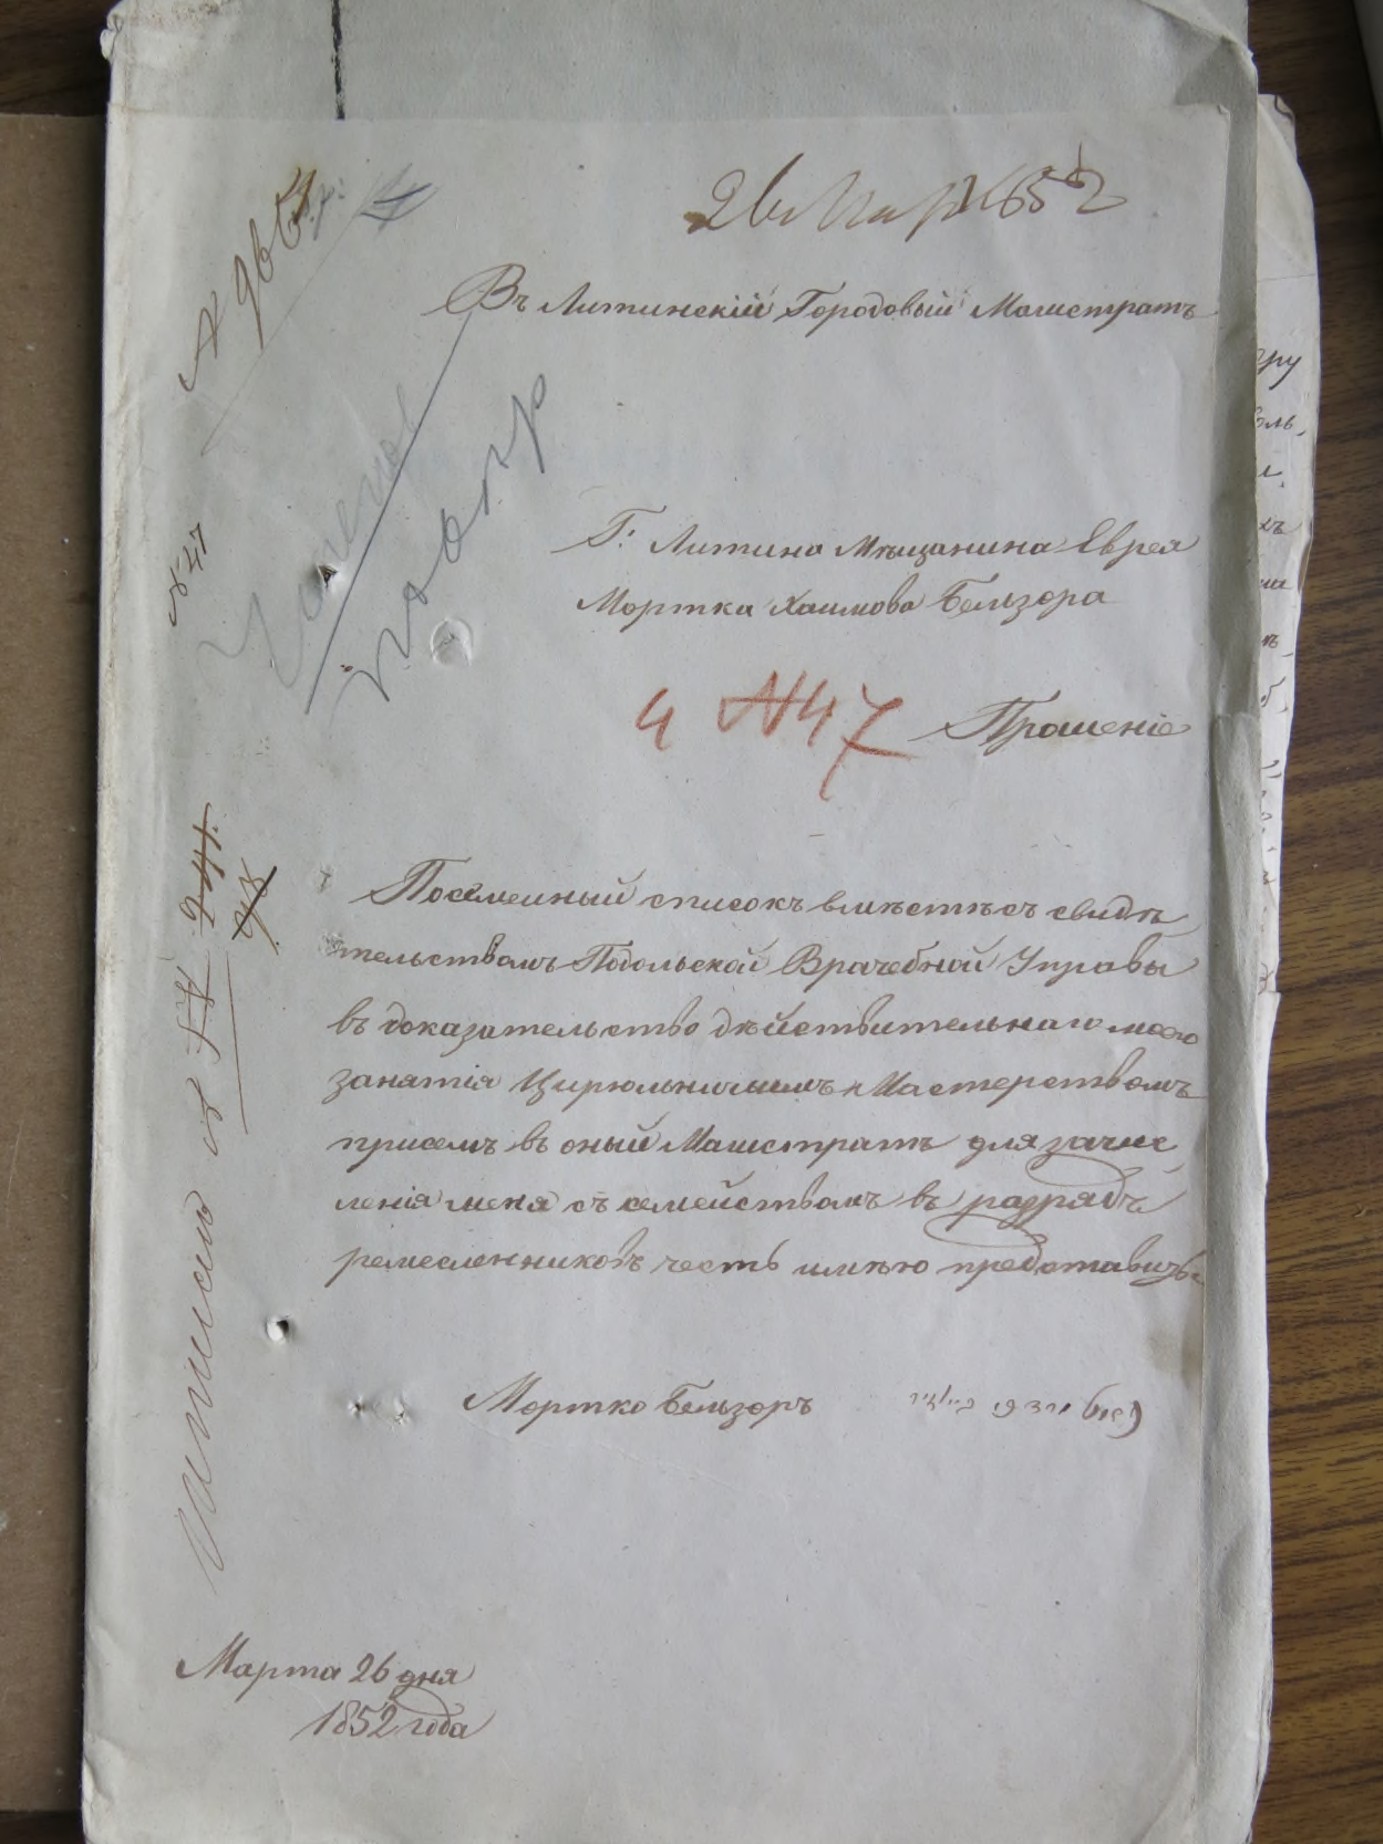 26 Мар 1852
Въ Литинскій Городовый Магистратъ
Г: Литина Мѣщанина Еврея
Мортка Хаимова Бельзора
4 №47
Прошеніе
№ 47
Посемейный списокъ вмѣстѣ съ свидѣ
тельствомъ Подольской Врачебной Управы
въ доказательство дѣйствительнаго моего
занятія Цирюльничьимъ Мастерствомъ
присемъ въ оный Магистратъ для зачис
ленія меня съ семействомъ въ разрядъ
ремесленниковъ честь имѣю представить.
Мортко Бельзоръ
Марта 26 дня
1852 года